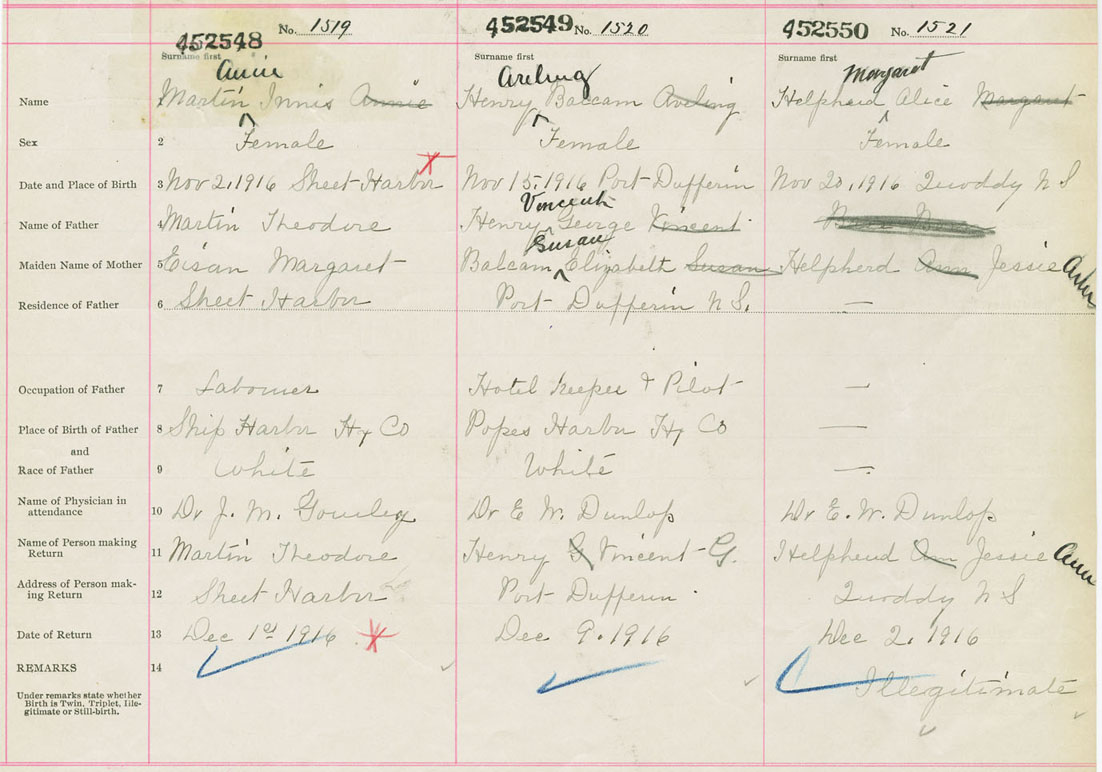 452548 No. 1519 452549 No. 1520 452550 No. 1521
Surname first Surname first Surname first
Annie Aveling Margaret
Name Martin Innis Annie Henry Balcam Aveling Helpherd Alice Margaret
Sex 2 Female Female Female
Date and Place of Birth 3 Nov 2, 1916 Sheet Harbor Nov 15, 1916 Port Dufferin Nov 20, 1916 Quoddy N S
Vincent
Name of Father 4 Martin Theodore Henry George Vincent
Susan
Maiden Name of Mother 5 Eisan Margaret Balcam Elizabeth Susan Helpherd Ann Jessie Ann
Residence of Father 6 Sheet Harbor Port Dufferin N S. —
Occupation of Father 7 Labourer Hotel Keeper & Pilot —
Place of Birth of Father 8 Ship Harbor Hx Co Popes Harbor Hx Co —
and
Race of Father 9 White White —
Name of Physician in
attendance 10 Dr J. M. Dr E W. Dunlop Dr E. W. Dunlop
Name of Person making
Return 11 Martin Theodore Henry G Vincent G. Helpherd Ann Jessie Ann
Address of Person mak-
ing Return 12 Sheet Harbor Port Dufferin Quoddy N S
Date of Return 13 Dec 1st 1916 Dec 9. 1916 Dec 2, 1916
REMARKS 14 Illegitimate
Under remarks state whether
Birth is Twin, Triplet, Ille-
gitimate or Still-birth.